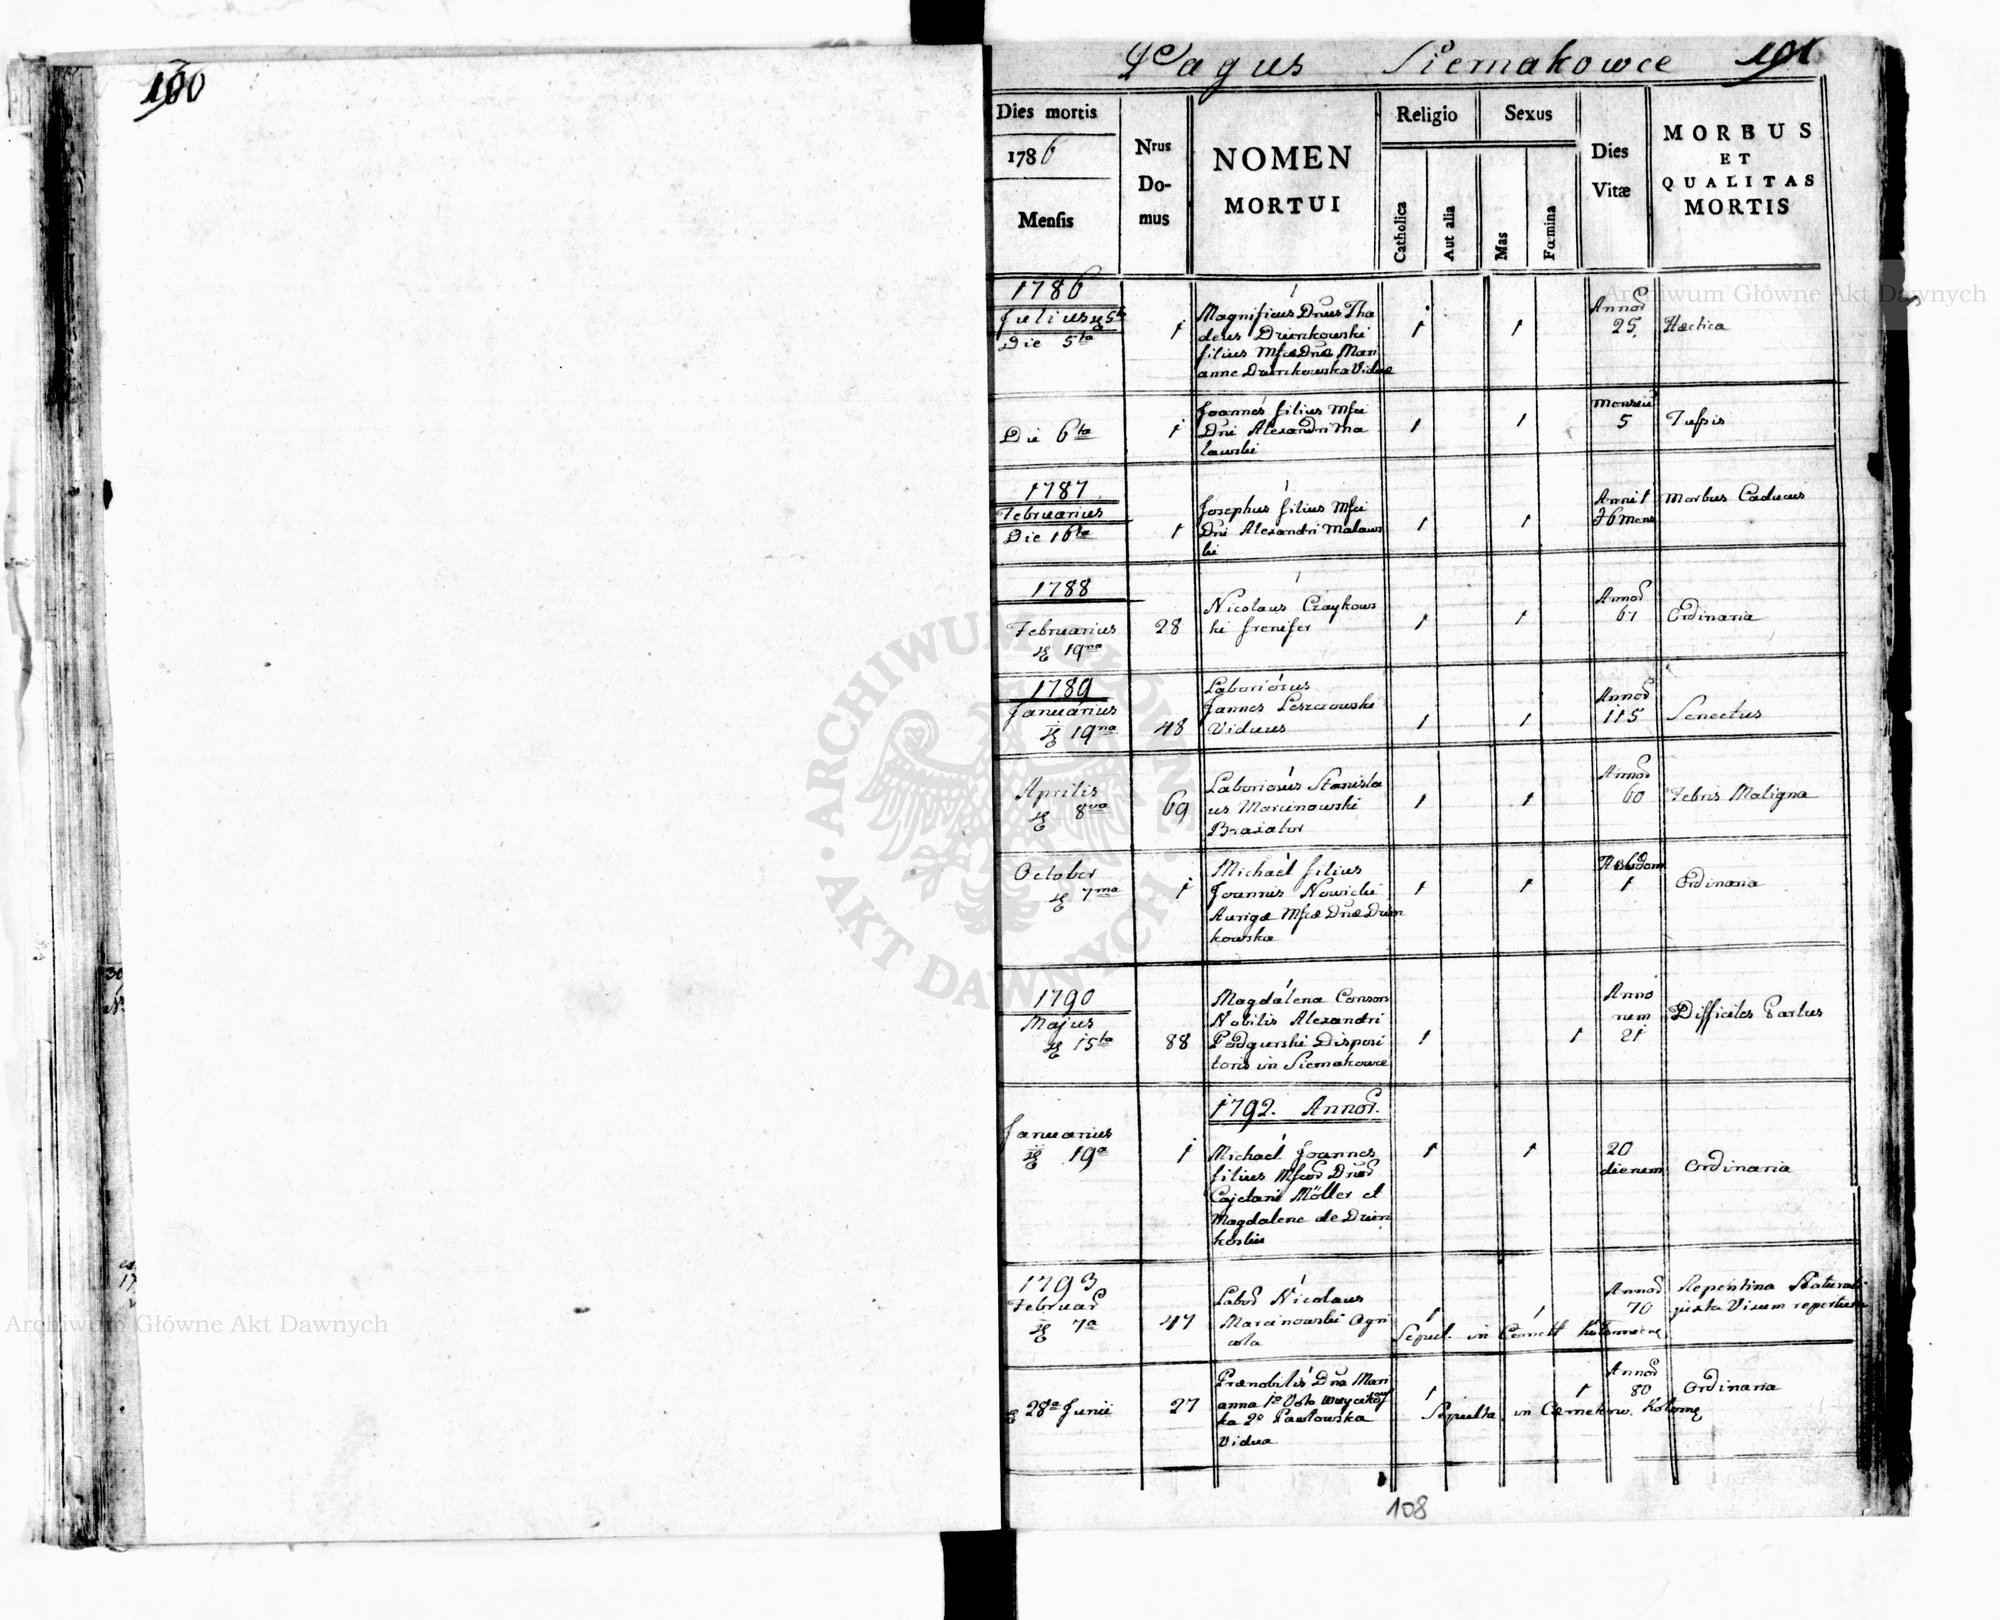 190
Pagus Siemakowce 191
Dies mortis
1786
Mensis
Nrus
Do-
mus
NOMEN
MORTUI
Religio
Catholica
Aut alia
Sexus
Mas
Fœmina
Dies
Vitæ
MORBUS
ET
QUALITAS
MORTIS
1786
Julius 5ta
Die 5ta
1
Magnificus Dnus Tha
deus Drienkowski
filius Mfcæ Dnæ Mari
anne Drienkowska Viduæ
1 1
Annor
25
Hectica
Die 6ta
1
Joannes filius Mfci
Dni Alexandri Ma
lawski
1 1
Mensiu
5
Tussis
1787
Februarius
Die 16ta
1
Josephus filius Mfci
Dni Alexandri Malaws
ki
1 1
Anni 1
6 mens
Morbus Caducus
1788
Februarius
19na
28
Nicolaus Czaykows
ki frenifer
1 1
Annor
61
Ordinaria
1789
Januarius
19na
48
Laboriosus
Joannes Leszczowski
Viduus
1 1
Annor
115
Senectus
Aprilis
8va
69
Laboriosus Stanisla
us Marcinowski
Braxator
1 1
Annor
60
Febris Maligna
October
7ma
1
Michael filius
Joannis Nowicki
Aurigæ Mfcæ Dnæ Drien
kowska
1 1
1
Ordinaria
1790
Majus
15ta
88
Magdalena Consors
Nobilis Alexandri
Podgurski Disposi
toris in Siemakowce
1 1
Anno
rum
21
Difficiles Partus
1792. Annor.
Januarius
19a
1
Michael Joannes
filius Mfcor Dnor
Cajetani Möller et
Magdalene de Drien
koskie
1 1
20
dierum
Ordinaria
1793
Februar
7a
47
Labor Nicolaus
Marcinowski Agri
cola
1 1
Sepul. in Cemett
Annor
70
Repentina Naturali
juxta Visum repertum
28a Junii
27
Prænobilis Dna Mari
anna 1o Voto
ka 2o Pawlowska
Vidua
1 1
Sepulta in Cæmeterio.
Annor
80
Ordinaria
108
Archiwum Główne Akt Dawnych
ARCHIWUM GŁÓWNE · AKT DAWNYCH ·
Archiwum Główne Akt Dawnych